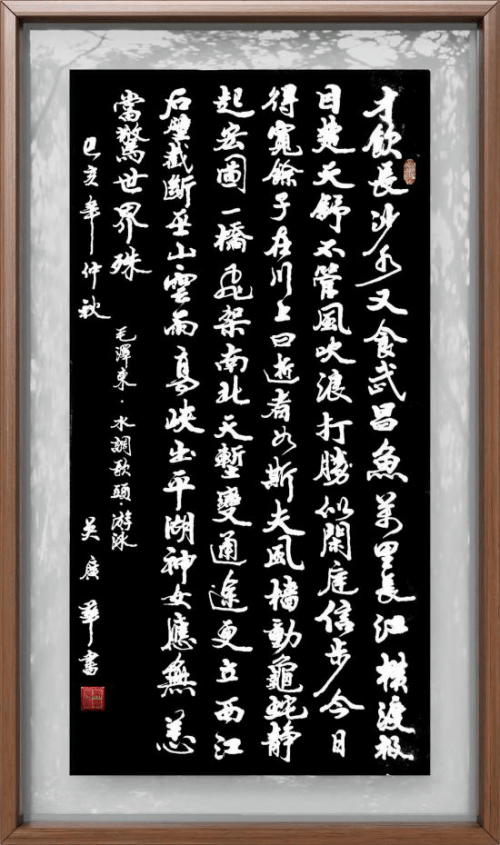 才飲長沙水又食武昌魚萬里長江横渡极
目楚天舒不管風吹浪打勝似閑庭信步今日
得寬餘子在川上曰逝者如斯夫風檣動龜蛇静
起宏圖一橋飛架南北天塹變通途更立西江
石壁截斷巫山雲雨高峽出平湖神女應無恙
當驚世界殊
毛澤東·水調歌頭 游泳
己亥年仲秋 吴廣華書